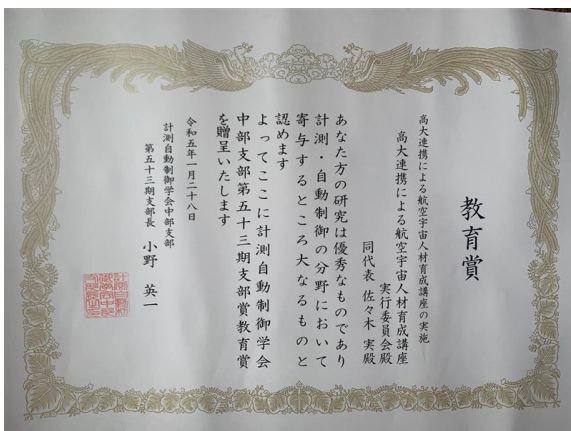 教育賞
高大連携による航空宇宙人材育成講座の実施
高大連携による航空宇宙人材育成講座
実行委員会殿
同代表 佐々木 実殿
あなた方の研究は優秀なものであり
計測・自動制御の分野において
寄与するところ大なるものと
認めます
よってここに計測自動制御学会
中部支部第五十三期支部賞教育賞
を贈呈いたします
令和五年一月二十八日
計測自動制御学会中部支部
第五十三期支部長 小野 英一